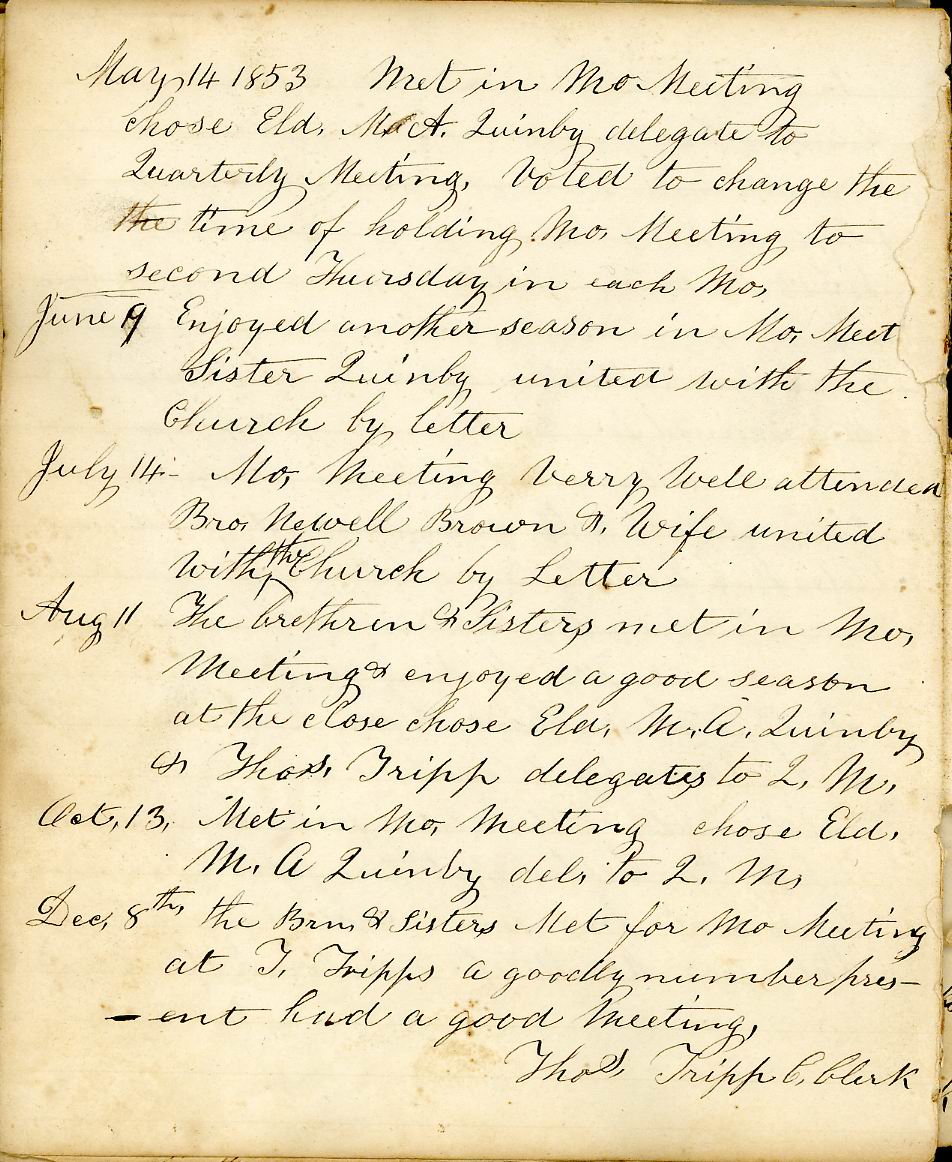 May 14 1853 Met in Mo Meeting
chose Eld. M. A. Quinby delegate to
Quarterly Meeting, Voted to change the
the time of holding Mo, Meeting to
second Thursday in each Mo,
June 9 Enjoyed another season in Mo, Meet
Sister Quinby united with the
Church by letter
July 14- Mo, Meeting Verry Well attended
Bro. Newell Brown &. Wife united
With the Church by Letter
Aug 11 The brethren & Sisters met in Mo,
Meeting & enjoyed a good season
at the close chose Eld. M. A. Quinby
& Thos. Tripp delegates to Q. M.
Oct, 13, Met in Mo, Meeting chose Eld.
M. A Quinby del. to Q. M,
Dec, 8th, the Brn & Sisters Met for Mo Meeting
at T. Tripps a goodly number pres-
-ent had a good Meeting,
Thos. Tripp C. Clerk